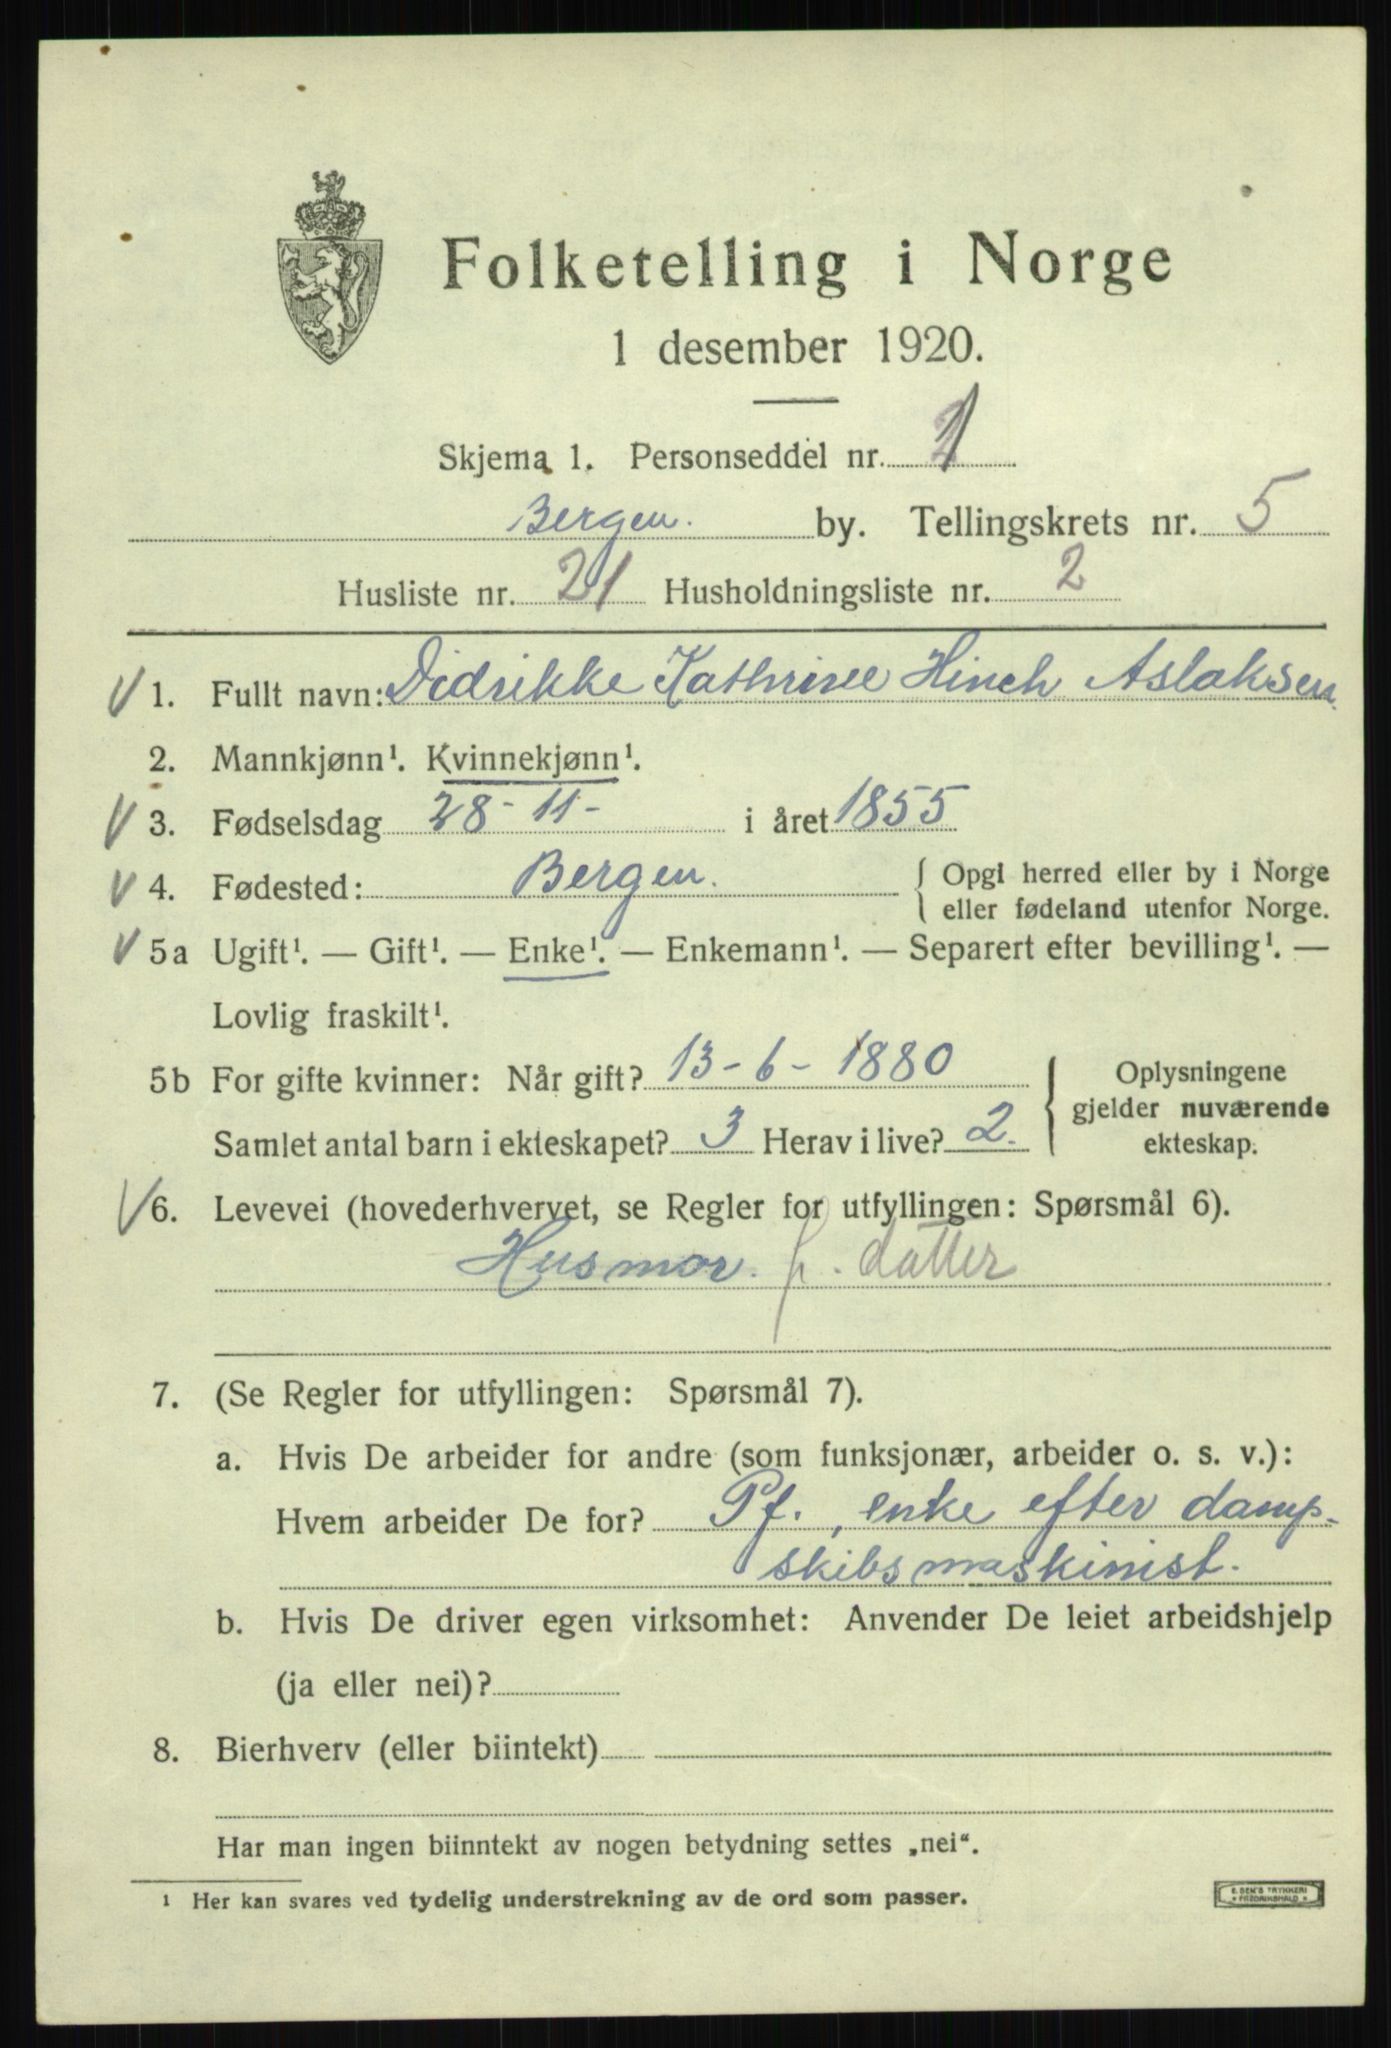 Folketelling i Norge
1 desember 1920.
Skjema 1. Personseddel nr. 1
Bergen. by. Tellingskrets nr. 5
Husliste nr. 21 Husholdningsliste nr. 2
1. Fullt navn: Didrikke Kathrine Hinch Aslaksen.
2. Mannkjønn¹. Kvinnekjønn¹.
3. Fødselsdag 28-11- i året 1855
4. Fødested: Bergen. { Opgi herred eller by i Norge
eller fødeland utenfor Norge.
5a Ugift¹. — Gift¹. — Enke¹. — Enkemann¹. — Separert efter bevilling¹. —
Lovlig fraskilt¹.
5b For gifte kvinner: Når gift? 13-6-1880 { Oplysningene
gjelder nuværende
Samlet antal barn i ekteskapet? 3 Herav i live? 2. ekteskap.
6. Levevei (hovederhvervet, se Regler for utfyllingen: Spørsmål 6).
Husmor. f. datter
7. (Se Regler for utfyllingen: Spørsmål 7).
a. Hvis De arbeider for andre (som funksjonær, arbeider o. s. v.):
Hvem arbeider De for? Pf., enke efter damp-
skibsmaskinist.
b. Hvis De driver egen virksomhet: Anvender De leiet arbeidshjelp
(ja eller nei)?
8. Bierhverv (eller biintekt)
Har man ingen biinntekt av nogen betydning settes „nei“.
¹ Her kan svares ved tydelig understrekning av de ord som passer.